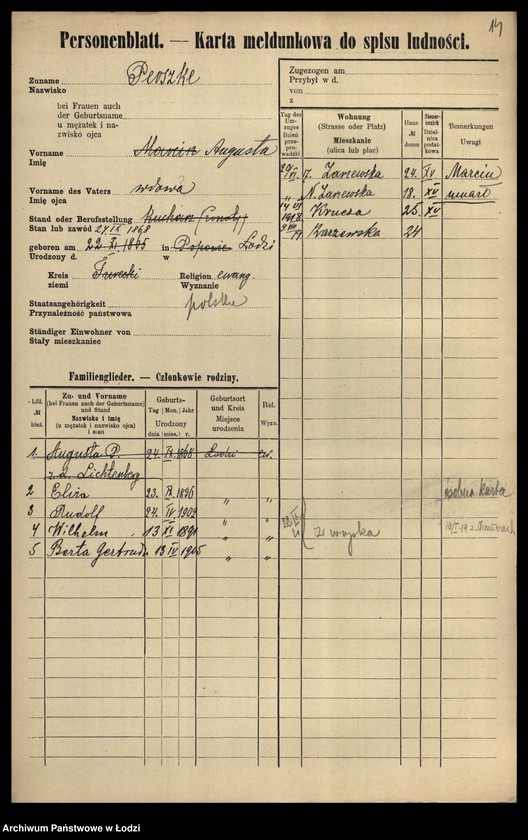 14
Personenblatt. — Karta meldunkowa do spisu ludności.
Zuname
Nazwisko
Peoszke
bei Frauen auch
der Geburtsname
u mężatek i na-
zwisko ojca
Vorname
Imię
Marcin Augusta
Vorname des Vaters
Imię ojca
wdowa
Stand oder Berufsstellung
Stan lub zawód 24 IX 1868
geboren am 22. XI. 1865 in Popowie Łodzi
Urodzony d. w
Kreis Turecki Religion ewang.
ziemi Wyznanie
Staatsangehörigkeit
Przynależność państwowa
polska
Ständiger Einwohner von
Stały mieszkaniec
Zugezogen am
Przybył w d.
von
z
Tag des Um-zuges Dzień prze-prowadzki
Wohnung
(Strasse oder Platz)
Mieszkanie
(ulica lub plac)
Haus- № domu
Steuer-bezirk Dzielnica podat-kowa
Bemerkungen
Uwagi
7. Zarzewska 24. XV Marcin
N. Zarzewska 18. XV umarł
Krucza 25. XV
Karzewska 24
Familienglieder. — Członkowie rodziny.
Lfd. № bież.
Zu- und Vorname
(bei Frauen auch der Geburtsname)
und Stand
Nazwisko i imię
(u mężatek i nazwisko ojca)
i stan
Geburts-
Tag Mon. Jahr
Urodzony
dnia mies. r.
Geburtsort und Kreis
Miejsce urodzenia
Rel.
Wyzn.
1. Augusta P. 24. IX 1868 Łodzi ew.
z d. Lichtenberg
2 Eliza 23. 1896 " " osobna karta
3 Rudolf 24. IV 1902 " "
4 Wilhelm 13 XI 1891 " " z wojska
5 Berta Gertrud 13 IV 1905 " "
Archiwum Państwowe w Łodzi